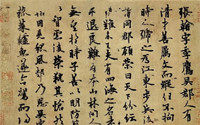 張翰字季鷹吳郡人有
清才善屬文而縱任不拘
時人號之為江東步兵後
謂同郡顧榮曰天下紛紜
禍難未已夫有四海之名者
求退良難吾本山林間人無
望於時子善以明防前以
智慮後榮執其愴然翰
因見秋風起乃思吳中菰
菜鱸魚遂命駕而歸